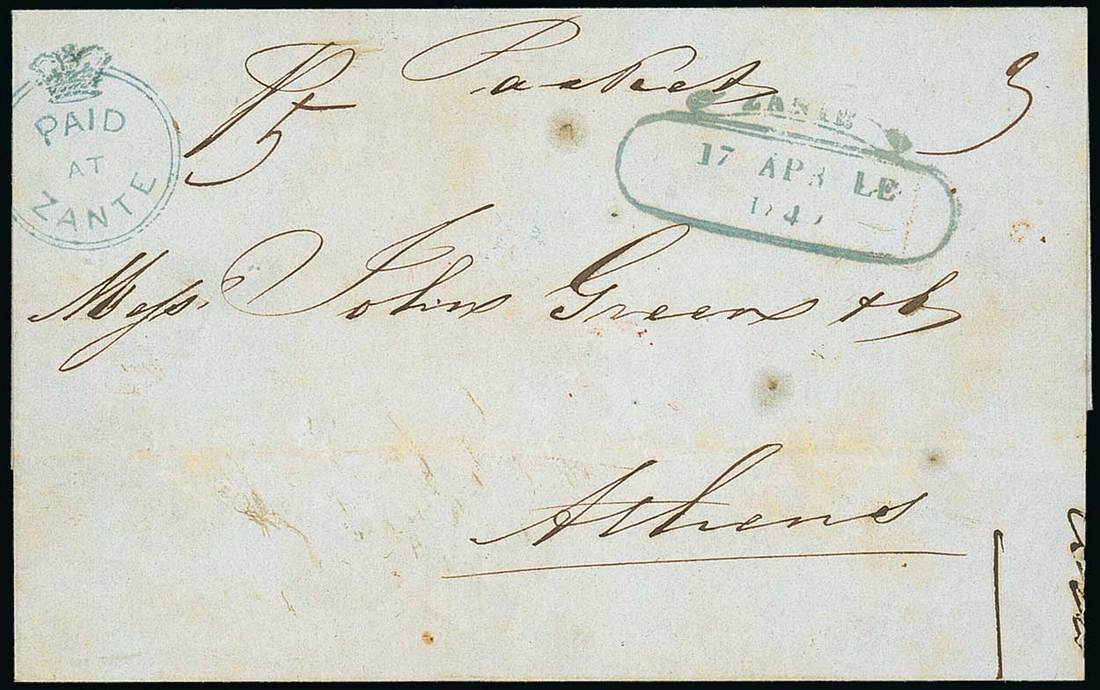 PAID
AT
ZANTE
Pr Packet
ZANTE
17 APRILE
184
Messrs John Green & Co
Athens